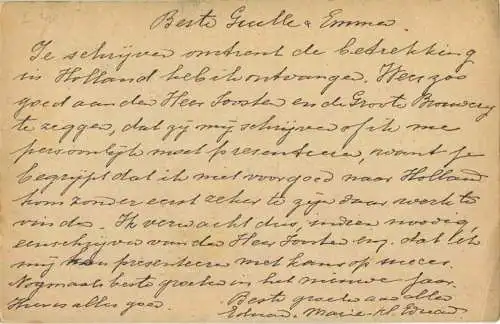 Beste Guille & Emma
Je schrijven omtrent de betrekking
in Holland heb ik ontvangen. Wees zoo
goed aan den Heer Sorster en de Groote Brouwerij
te zeggen, dat zij mij schrijven of ik me
persoonlijk moet presenteeren, want je
begrijpt dat ik niet voorgoed naar Holland
kom zonder eerst zeker te zijn daar werk te
vinden. Ik verwacht dus, indien noodig,
een schrijven van den Heer enz. dat ik
mij kan presenteeren met kans op succes.
Nogmaals beste groeten in het nieuwe jaar.
Hier is alles goed. Beste groeten aan allen
Marie